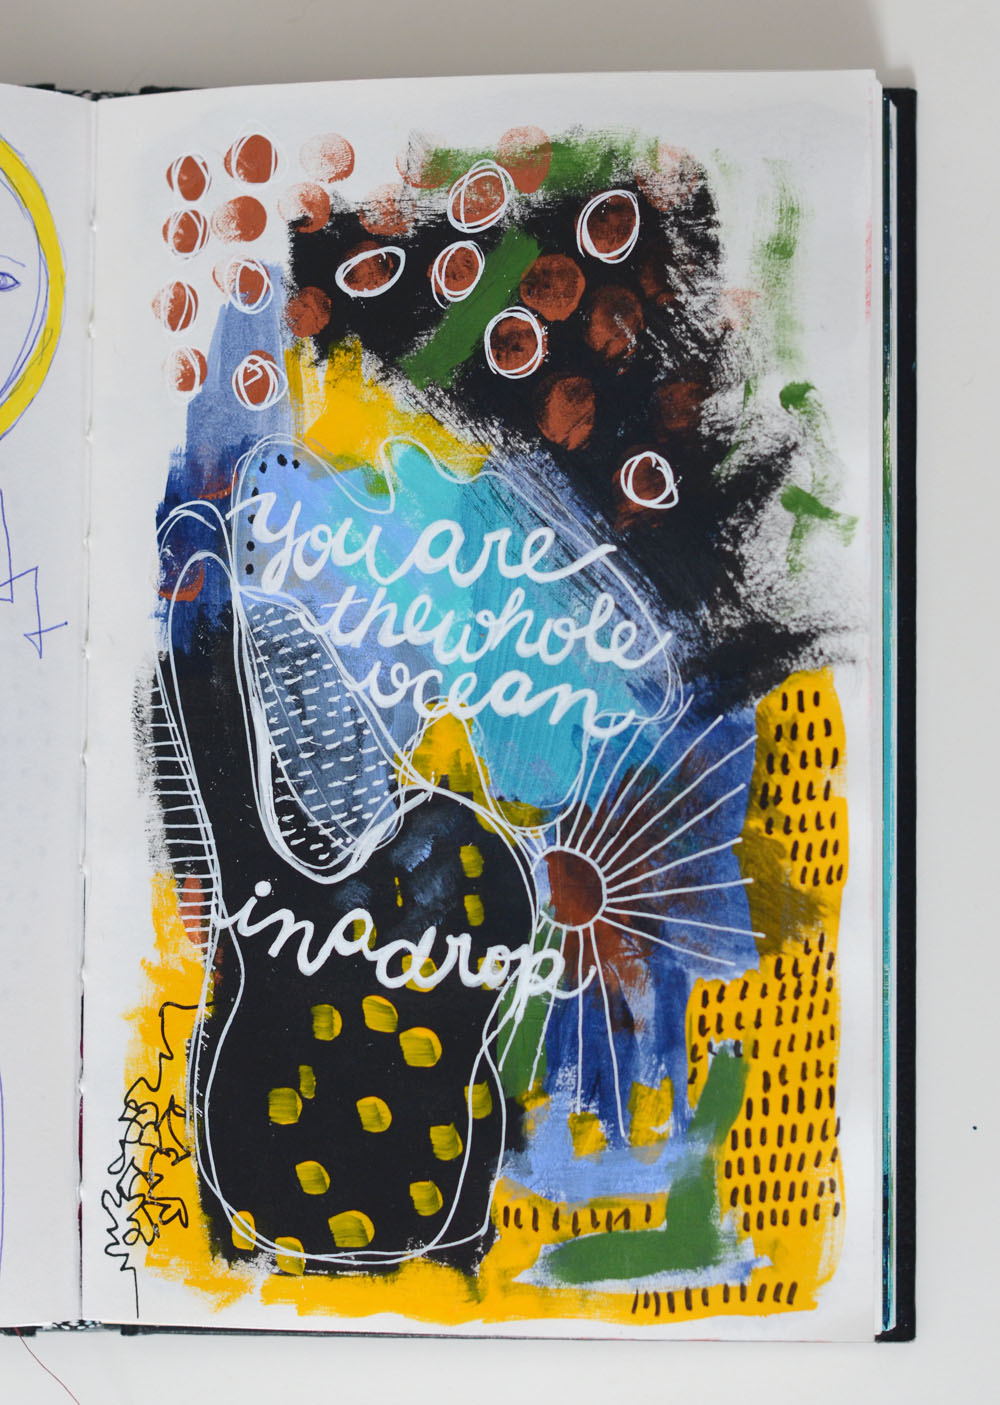 you are
the whole
ocean
in a drop